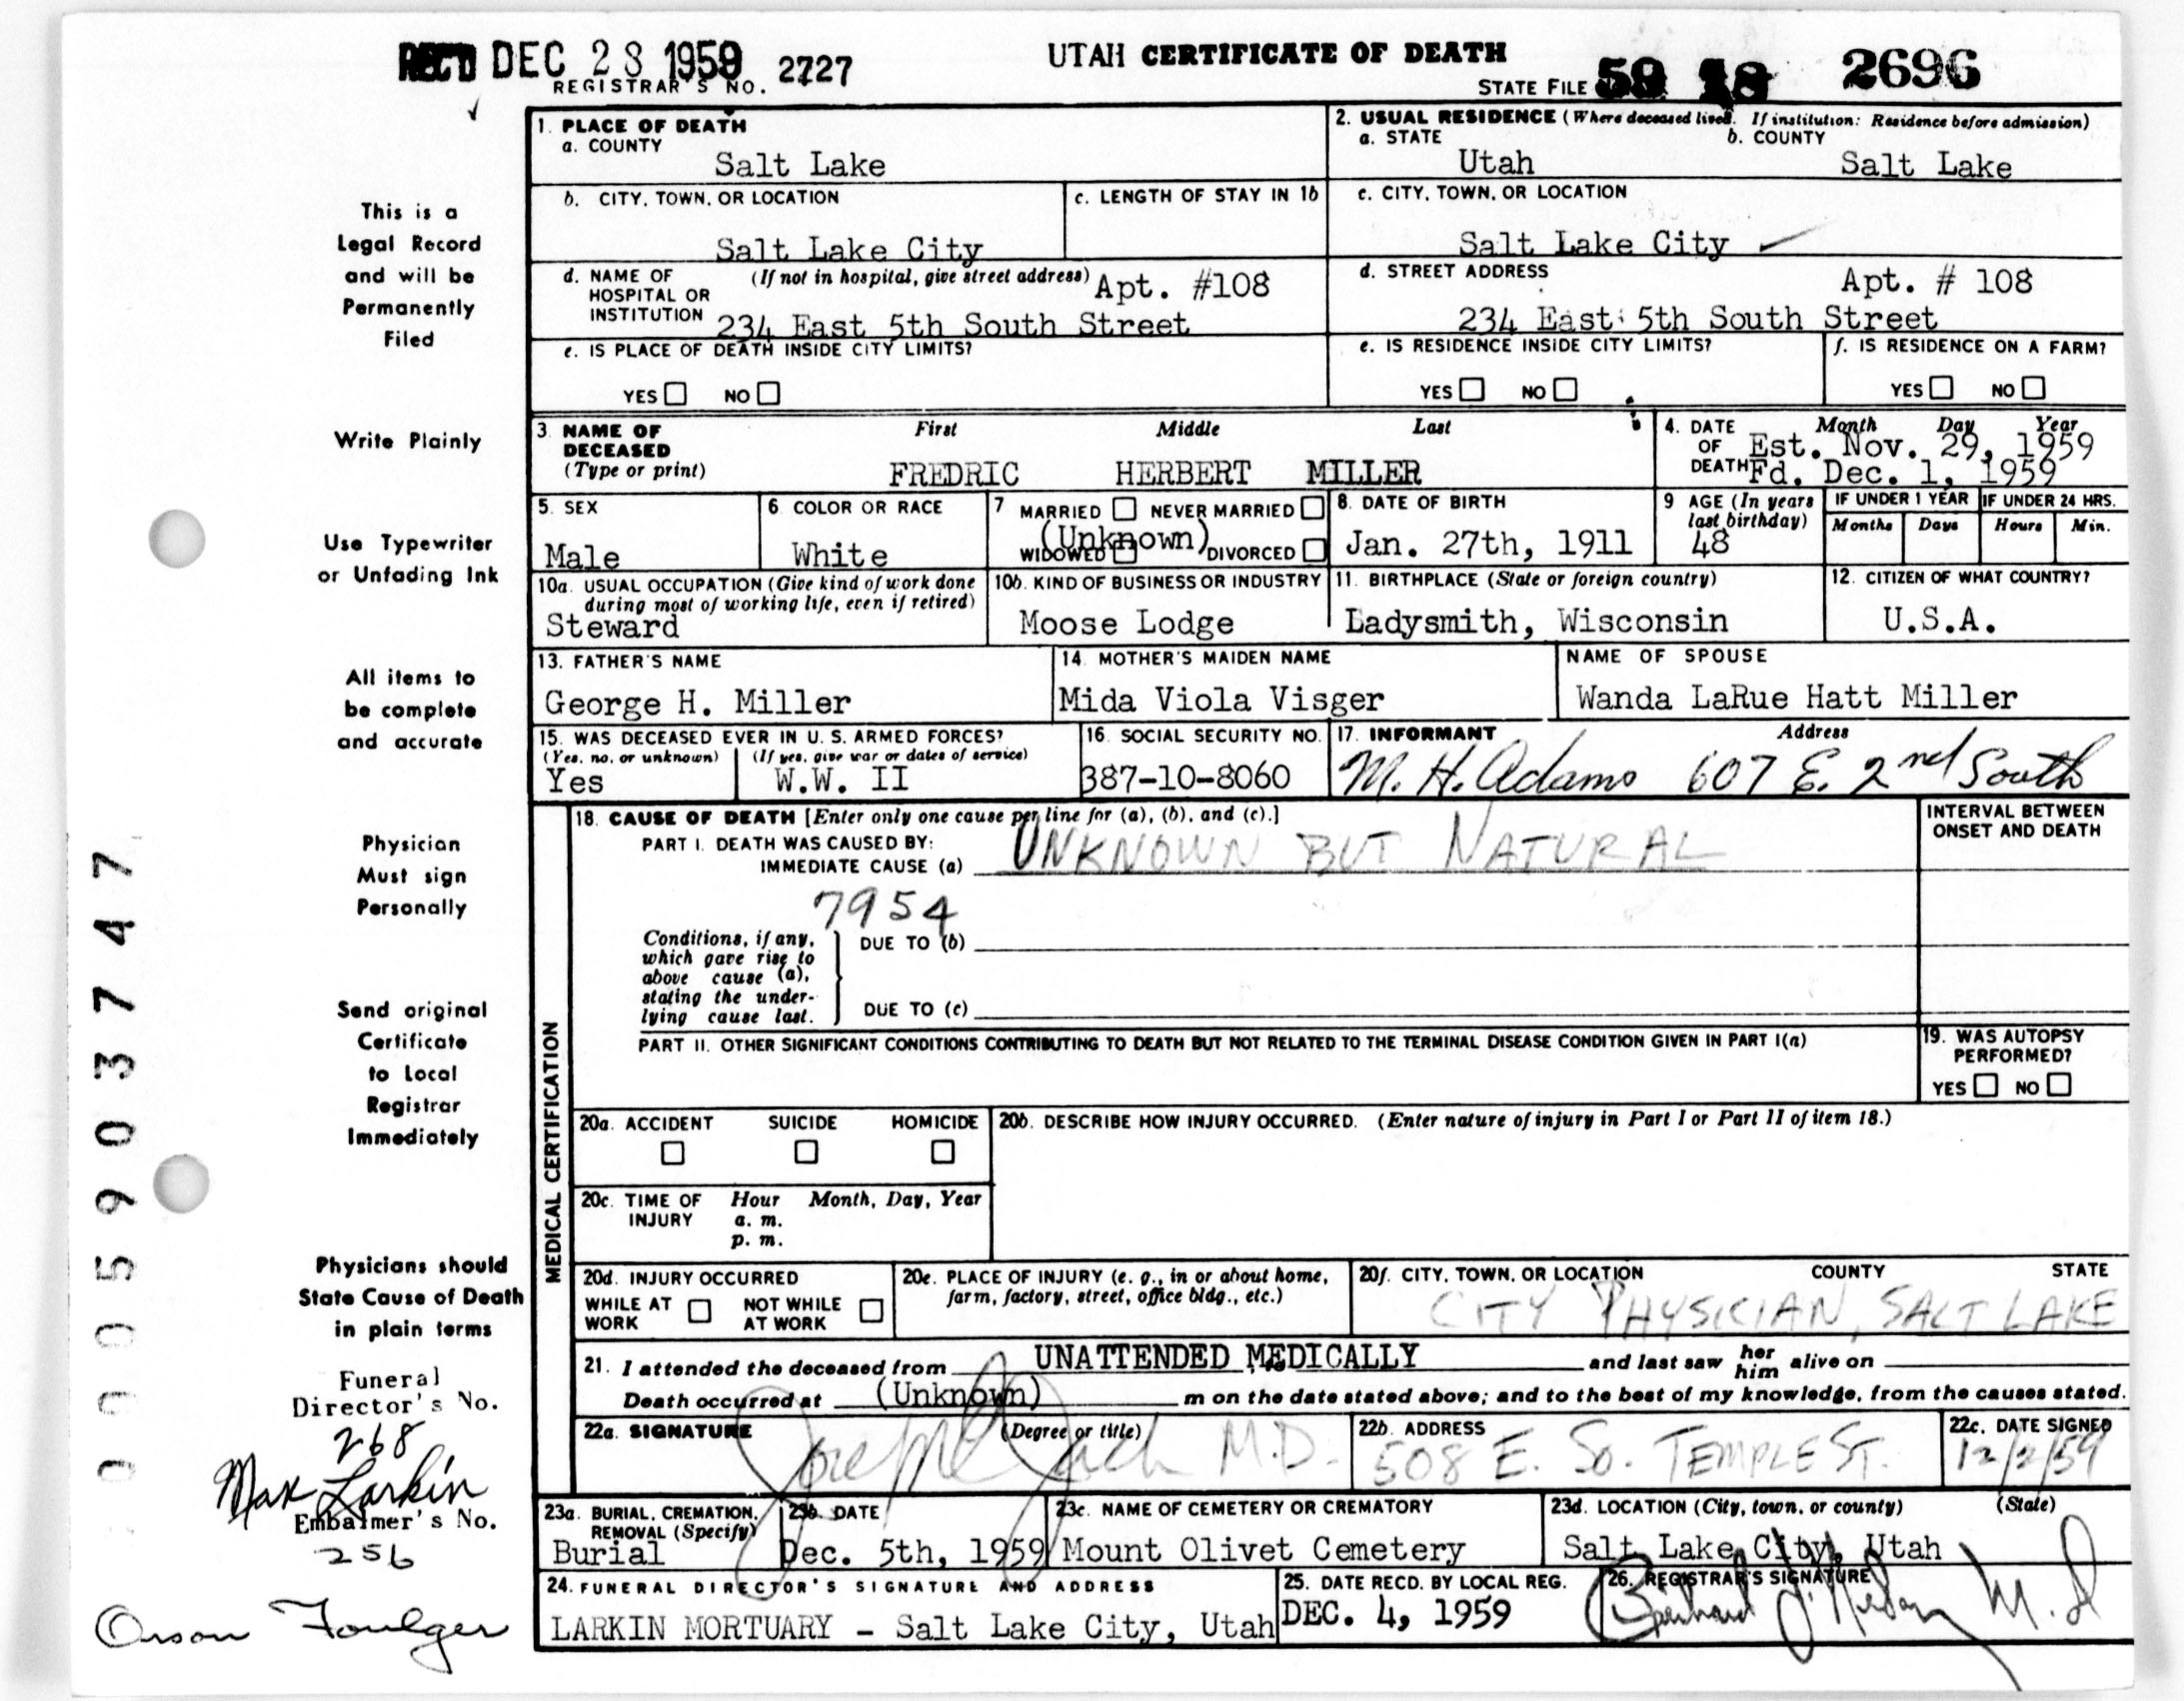 REC'D DEC 23 1959 2727
REGISTRAR'S NO.
UTAH CERTIFICATE OF DEATH
STATE FILE 59 18 2696
This is a
Legal Record
and will be
Permanently
Filed
Write Plainly
Use Typewriter
or Unfading Ink
All items to
be complete
and accurate
Physician
Must sign
Personally
Send original
Certificate
to Local
Registrar
Immediately
Physicians should
State Cause of Death
in plain terms
Funeral
Director's No.
268
Max Larkin
Embalmer's No.
256
Orson Foulger
000590 3747
1. PLACE OF DEATH
a. COUNTY
Salt Lake
2. USUAL RESIDENCE (Where deceased lived. If institution: Residence before admission)
a. STATE b. COUNTY
Utah Salt Lake
b. CITY, TOWN, OR LOCATION
Salt Lake City
c. LENGTH OF STAY IN 1b
c. CITY, TOWN, OR LOCATION
Salt Lake City
d. NAME OF (If not in hospital, give street address) Apt. #108
HOSPITAL OR
INSTITUTION 234 East 5th South Street
d. STREET ADDRESS Apt. # 108
234 East 5th South Street
e. IS PLACE OF DEATH INSIDE CITY LIMITS?
YES NO
e. IS RESIDENCE INSIDE CITY LIMITS?
YES NO
f. IS RESIDENCE ON A FARM?
YES NO
3. NAME OF First Middle Last
DECEASED
(Type or print) FREDRIC HERBERT MILLER
4. DATE Month Day Year
OF Est. Nov. 29, 1959
DEATH Fd. Dec. 1, 1959
5. SEX
Male
6 COLOR OR RACE
White
7 MARRIED NEVER MARRIED
(Unknown)
WIDOWED DIVORCED
8. DATE OF BIRTH
Jan. 27th, 1911
9 AGE (In years
last birthday)
48
IF UNDER 1 YEAR IF UNDER 24 HRS.
Months Days Hours Min.
10a. USUAL OCCUPATION (Give kind of work done
during most of working life, even if retired)
Steward
10b. KIND OF BUSINESS OR INDUSTRY
Moose Lodge
11. BIRTHPLACE (State or foreign country)
Ladysmith, Wisconsin
12. CITIZEN OF WHAT COUNTRY?
U.S.A.
13. FATHER'S NAME
George H. Miller
14. MOTHER'S MAIDEN NAME
Mida Viola Visger
NAME OF SPOUSE
Wanda LaRue Hatt Miller
15. WAS DECEASED EVER IN U. S. ARMED FORCES?
(Yes, no, or unknown) (If yes, give war or dates of service)
Yes W.W. II
16. SOCIAL SECURITY NO.
387-10-8060
17. INFORMANT Address
M. H. Adams 607 E. 2nd South
MEDICAL CERTIFICATION
18. CAUSE OF DEATH [Enter only one cause per line for (a), (b), and (c).]
PART I. DEATH WAS CAUSED BY:
IMMEDIATE CAUSE (a) UNKNOWN BUT NATURAL
INTERVAL BETWEEN
ONSET AND DEATH
7954
Conditions, if any,
which gave rise to
above cause (a),
stating the under-
lying cause last.
DUE TO (b)
DUE TO (c)
PART II. OTHER SIGNIFICANT CONDITIONS CONTRIBUTING TO DEATH BUT NOT RELATED TO THE TERMINAL DISEASE CONDITION GIVEN IN PART I(a)
19. WAS AUTOPSY
PERFORMED?
YES NO
20a. ACCIDENT SUICIDE HOMICIDE
20b. DESCRIBE HOW INJURY OCCURRED. (Enter nature of injury in Part I or Part II of item 18.)
20c. TIME OF Hour Month, Day, Year
INJURY a. m.
p. m.
20d. INJURY OCCURRED
WHILE AT NOT WHILE
WORK AT WORK
20e. PLACE OF INJURY (e. g., in or about home,
farm, factory, street, office bldg., etc.)
20f. CITY, TOWN, OR LOCATION COUNTY STATE
CITY PHYSICIAN, SALT LAKE
21. I attended the deceased from UNATTENDED MEDICALLY and last saw her him alive on
Death occurred at (Unknown) m on the date stated above; and to the best of my knowledge, from the causes stated.
22a. SIGNATURE (Degree or title)
M.D.
22b. ADDRESS
508 E. So. TEMPLE ST.
22c. DATE SIGNED
12/2/59
23a. BURIAL, CREMATION,
REMOVAL (Specify)
Burial
23b. DATE
Dec. 5th, 1959
23c. NAME OF CEMETERY OR CREMATORY
Mount Olivet Cemetery
23d. LOCATION (City, town, or county) (State)
Salt Lake City, Utah
24. FUNERAL DIRECTOR'S SIGNATURE AND ADDRESS
LARKIN MORTUARY - Salt Lake City, Utah
25. DATE RECD. BY LOCAL REG.
DEC. 4, 1959
26. REGISTRAR'S SIGNATURE
M.D